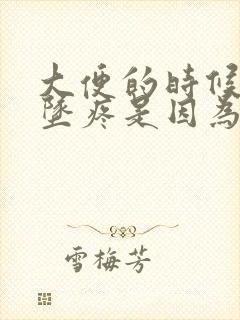 大便的時候
墜疼是因為
雪梅芳